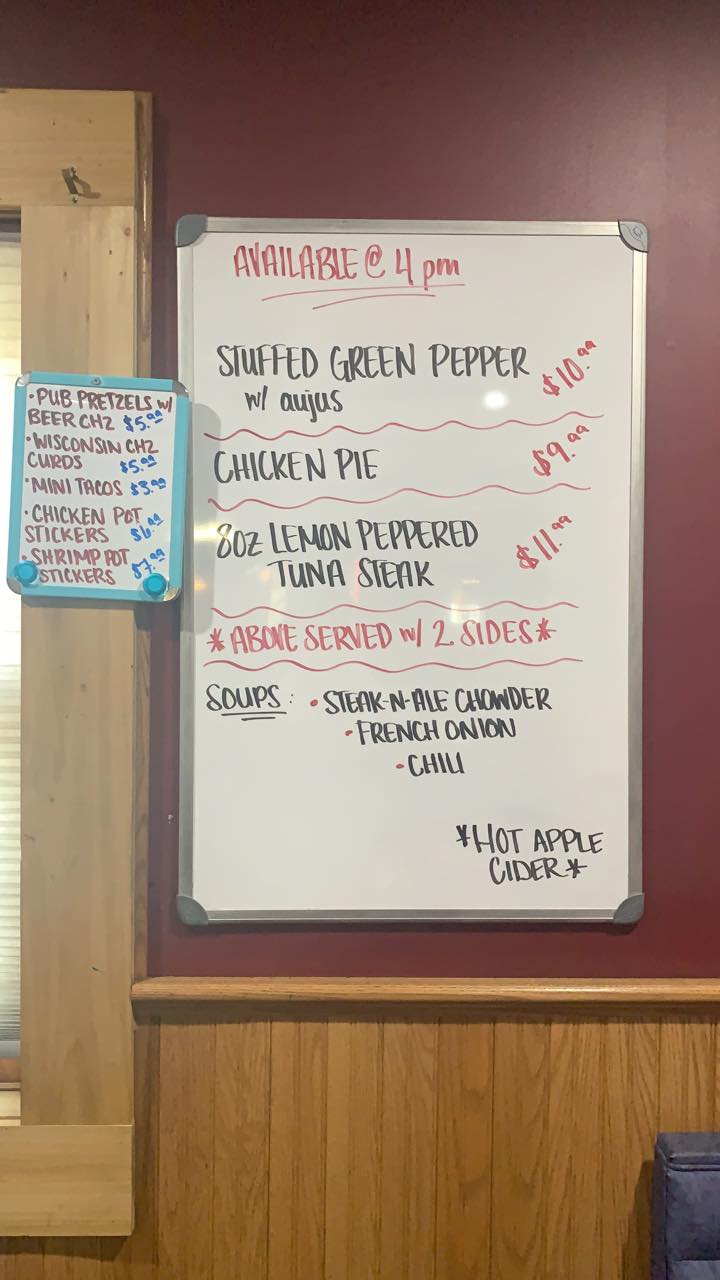 AVAILABLE @ 4 pm
STUFFED GREEN PEPPER $10.99
w/ aujus
CHICKEN PIE $9.99
8OZ LEMON PEPPERED
TUNA STEAK $11.99
*ABOVE SERVED w/ 2 SIDES*
SOUPS: • STEAK-N-ALE CHOWDER
• FRENCH ONION
• CHILI
*HOT APPLE
CIDER*
• PUB PRETZELS w/
BEER CHZ $5.99
• WISCONSIN CHZ
CURDS $5.99
• MINI TACOS $3.99
• CHICKEN POT
STICKERS $6.99
• SHRIMP POT
STICKERS $7.99